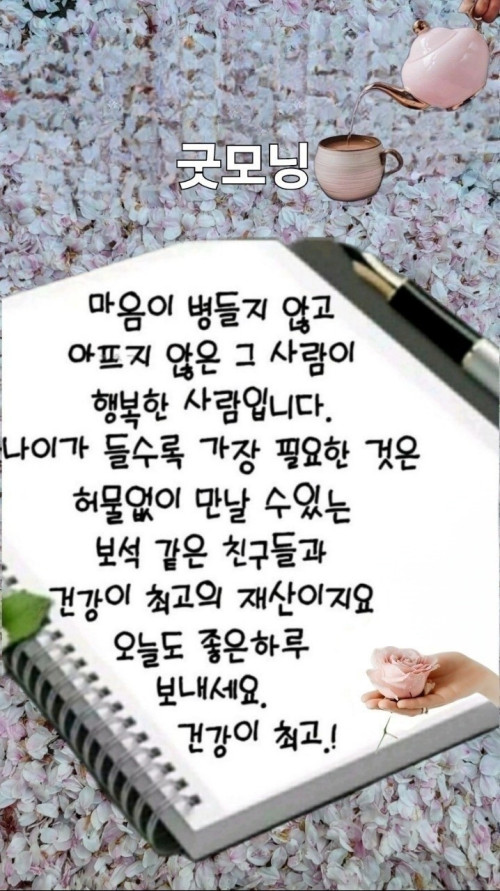 굿모닝
마음이 병들지 않고
아프지 않은 그 사람이
행복한 사람입니다.
나이가 들수록 가장 필요한 것은
허물없이 만날 수있는
보석 같은 친구들과
건강이 최고의 재산이지요
오늘도 좋은하루
보내세요.
건강이 최고.!